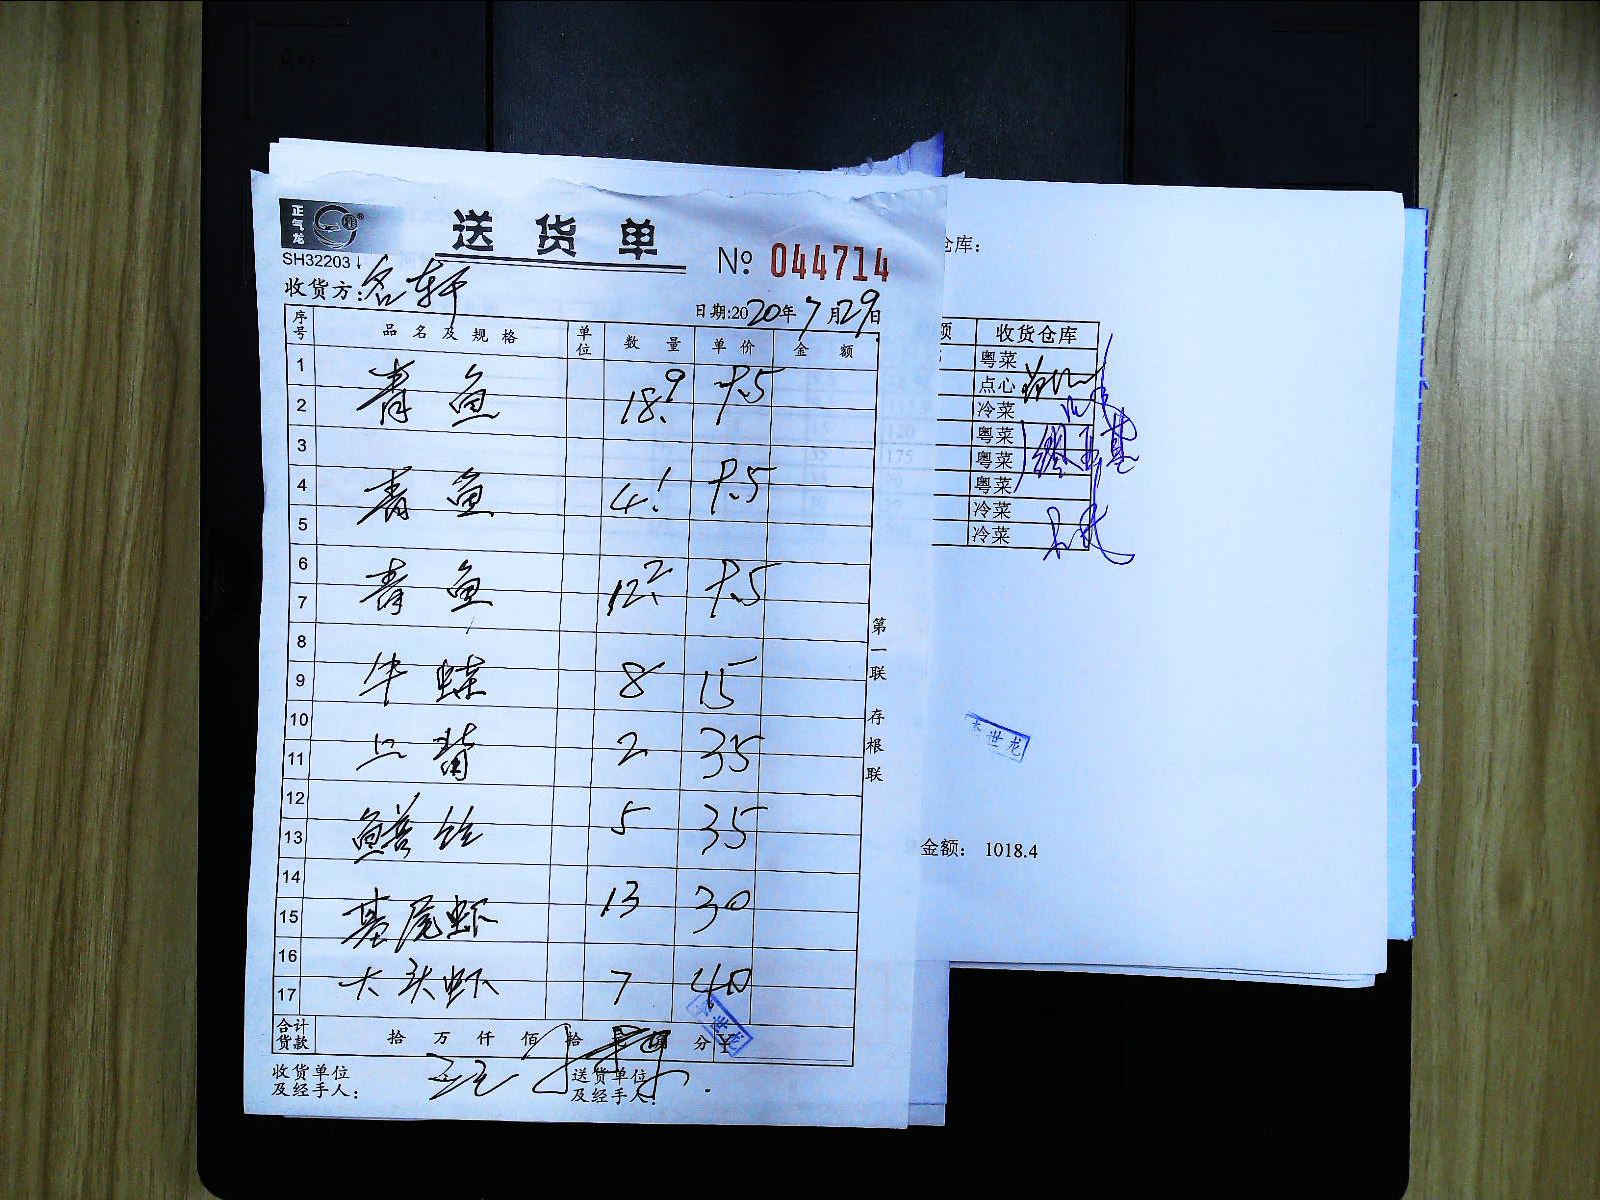 正气龙
送货单
SH32203
№ 044714
收货方:名轩
日期:2020年7月29日
序号 品名及规格 单位 数量 单价 金额
1
青鱼 18.9 9.5
2
3
4 青鱼 4.1 9.5
5
6
青鱼 12.2 9.5
7
8
9 牛蛙 8 15
10
11 2 35
12
13 鳝丝 5 35
14
15 基尾虾 13 30
16
17 大头虾 7 40
合计货款 拾 万 仟 佰 拾 分
收货单位及经手人:
送货单位及经手人:
第一联 存根联
李世龙
仓库:
额 收货仓库
粤菜
点心
冷菜
粤菜
粤菜
粤菜
冷菜
冷菜
世龙
金额: 1018.4